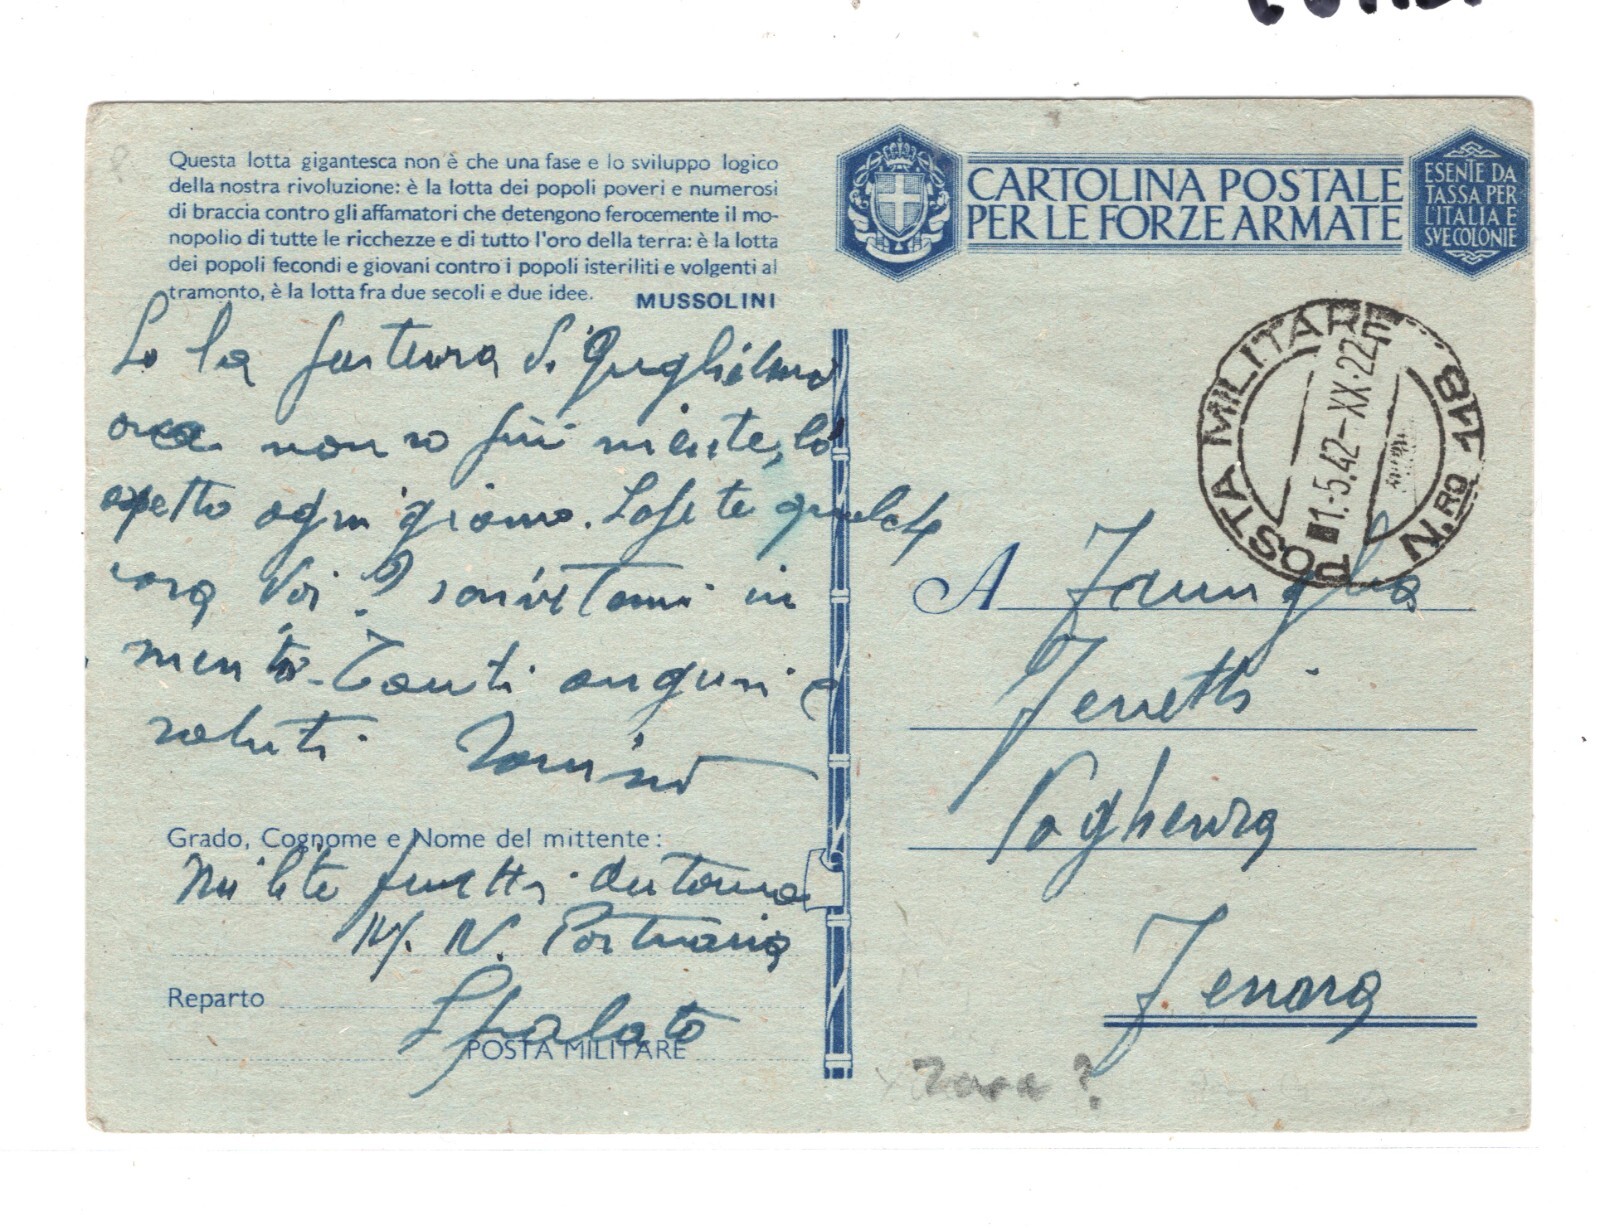 Questa lotta gigantesca non è che una fase e lo sviluppo logico
della nostra rivoluzione: è la lotta dei popoli poveri e numerosi
di braccia contro gli affamatori che detengono ferocemente il mo-
nopolio di tutte le ricchezze e di tutto l'oro della terra: è la lotta
dei popoli fecondi e giovani contro i popoli isteriliti e volgenti al
tramonto, è la lotta fra due secoli e due idee. MUSSOLINI
la di Guglielmo
ora non so più niente, lo
aspetto ogni giorno. qualche
cosa Voi? in
merito. Tanti auguri e
saluti. Tonino
Grado, Cognome e Nome del mittente:
Milite Antonio
IV. Portuaria
Reparto
Spalato
POSTA MILITARE
CARTOLINA POSTALE
PER LE FORZE ARMATE
ESENTE DA
TASSA PER
L'ITALIA E
SVE COLONIE
POSTA MILITARE N.RO 118
1.5.42-XX.22
A Famiglia
Ferretti
Voghenza
Ferrara
Zara?